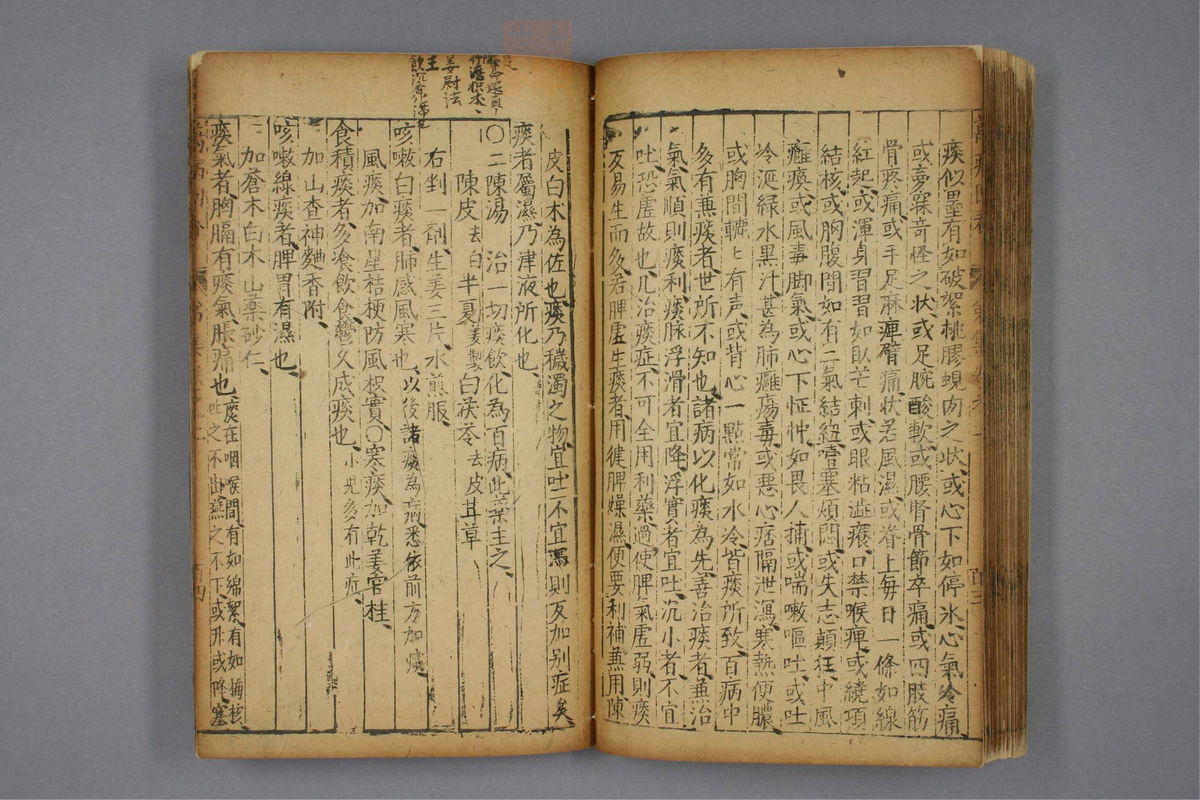 痰似墨有如破絮桃膠蜆肉之状或心下如停氷心氣冷痛
或夢寐竒怪之状或足腕酸軟或腰脊骨節卒痛或四肢筋
骨疼痛或手足麻痺臂痛状若風濕或脊上每日一條如線
紅起或渾身習習如臥芒刺或眼粘澁癢口禁喉痺或繞項
結核或胸腹間如有二氣結紐噎塞煩悶或失志顛狂中風
癱瘓或風毒脚氣或心下怔忡如畏人捕或喘嗽嘔吐或吐
冷涎緑水黒汁甚為肺癰瘍毒或惡心痞膈泄瀉寒熱便膿
或胸間轆々有声或背心一點常如水冷皆痰所致百病中
多有兼痰者世所不知也諸病以化痰為先善治痰者兼治
氣氣順則痰利痰脉浮滑者宜降浮實者宜吐沉小者不宜
吐恐虚故也凡治痰症不可全用利藥過使脾氣虚弱則痰
反易生而多若脾虚生痰者用健脾燥濕便要利補兼用陳
皮白术為佐也痰乃穢濁之物宜吐不宜瀉則反加别症矣
痰者屬濕乃津液所化也
〇二陳湯　治一切痰飲化為百病此藥主之
陳皮去白 半夏姜製 白茯苓去皮 甘草
右剉一劑生姜三片水煎服
咳嗽白痰者肺感風寒也以後諸痰為病悉依前方加減
風痰加南星桔梗防風枳實〇寒痰加乾姜官桂
食積痰者多飡飲食鬱久成痰也小児多有此症
加山查神麯香附
咳嗽線痰者脾胃有濕也
加蒼术白术山藥砂仁
痰氣者胸膈有痰氣脹痛也痰在咽喉間有如綿絮有如梅核
吐之不出嚥之不下或升或降塞
姜尉法